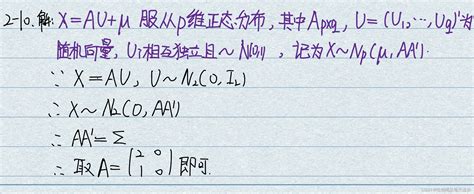 2-10. 解: X=AU+μ 服从p维正态分布, 其中Apxq, U=(U₁,…,Uq)'为
随机向量, Ui相互独立且~N(0,1), 记为X~Np(μ, AA')
∵ X=AU, U~N₂(0, I₂)
∴ X~N₂(0, AA')
∴ AA'=Σ
∴ 取A=(2 0
1 0)即可.